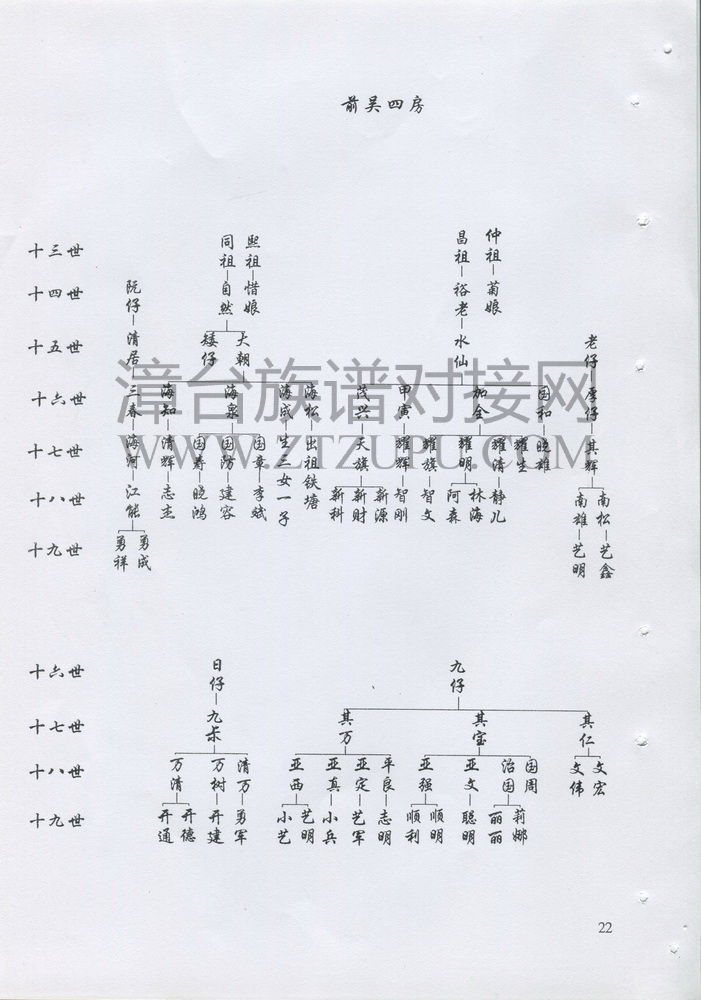 前吴四房
十三世
同祖 熙祖 昌祖 仲祖
十四世
阮仔 自然 惜娘 裕老 菊娘
十五世
清居 矮仔 大朝 水仙 老仔
十六世
三春 海知 海泉 海成 海松 茂兴 甲寅 加全 国和 厚仔
十七世
海河 清辉 国寿 国防 国章 生三女一子 出祖铁塘 天旗 耀辉 耀旗 耀明 耀清 耀生 晓雄 其辉
十八世
江能 志杰 晓鸿 建容 李斌 新科 新财 新源 智刚 智文 阿森 林海 静儿 南雄 南松
十九世
勇祥 勇成 艺明 艺鑫
十六世
日仔 九仔
十七世
九来 其万 其宝 其仁
十八世
万清 万树 清万 亚西 亚真 亚定 平良 亚强 亚文 治国 国周 文伟 文宏
十九世
开通 开德 开建 勇军 小艺 艺明 小兵 艺军 志明 顺利 顺明 聪明 丽丽 莉娜
漳台族谱对接网
WWW.ZTZUPU.COM
22